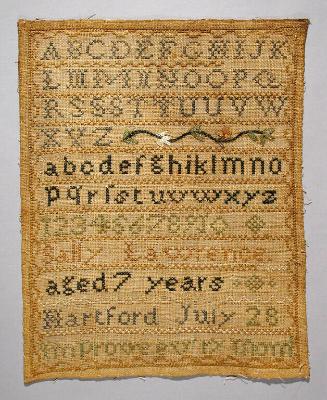 ABCDEFGHIJK
LMNOPQ
RSTUVW
XYZ
abcdefghiklmno
pqrſstuvwxyz
12345678910
Sally Lawrence
aged 7 years
Hartford July 28
Improve